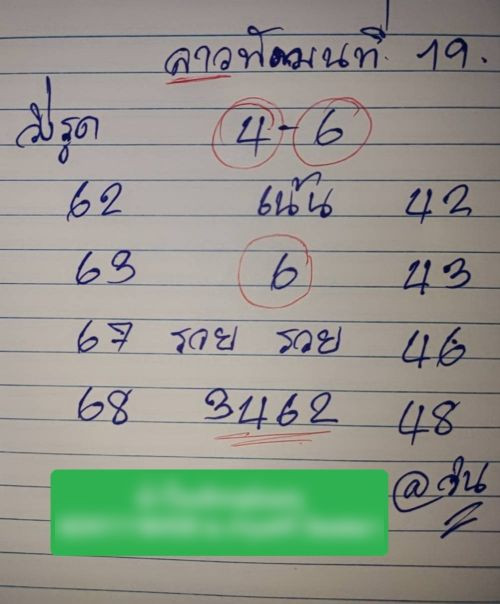 ลาวพัฒนาที่ 19.
วิ่งรูด 4-6
62 เน้น 42
63 6 43
67 รวย รวย 46
68 3462 48